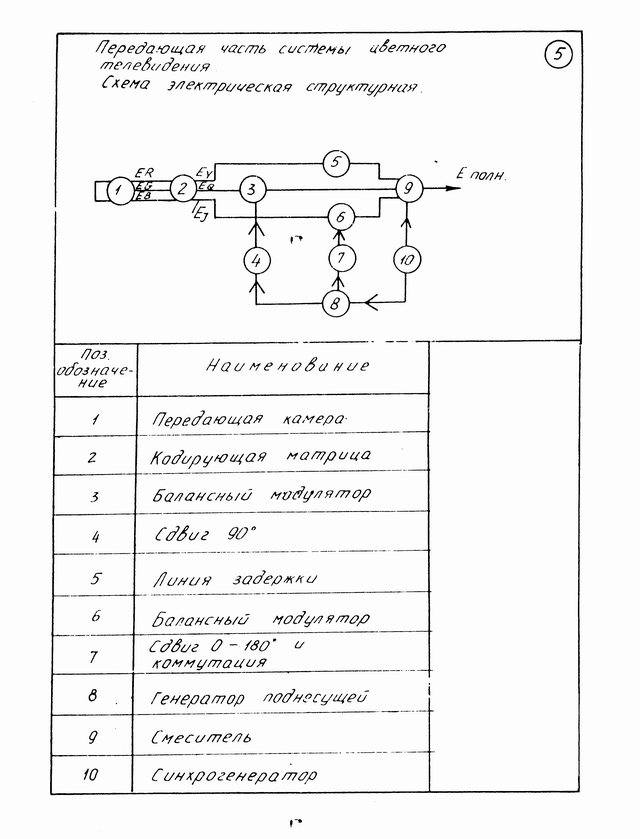 Передающая часть системы цветного
телевидения
Схема электрическая структурная.
5
ER
EG
EB
EY
EQ
EJ
1
2
3
5
9
6
4
7
10
8
E полн.
Поз.
обозначе-
ние
Наименование
1 Передающая камера
2 Кодирующая матрица
3 Балансный модулятор
4 Сдвиг 90°
5 Линия задержки
6 Балансный модулятор
7 Сдвиг 0 – 180° и
коммутация
8 Генератор поднесущей
9 Смеситель
10 Синхрогенератор